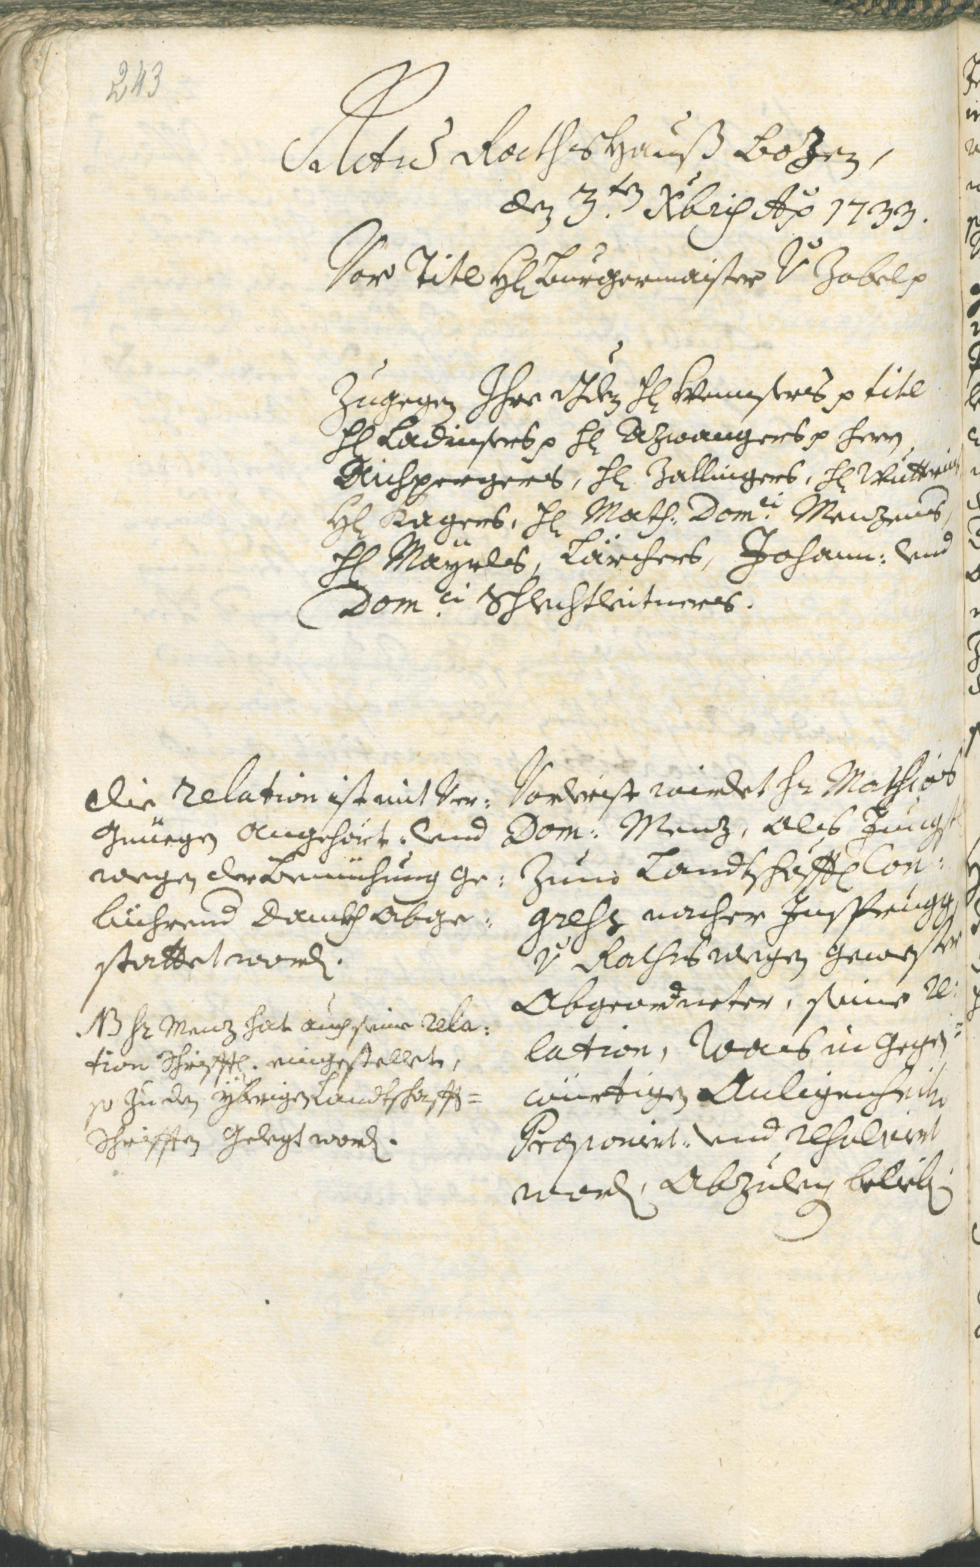 243
Actum Rathshauß Bozen,
den 3.ten Xbris Ao 1733.
Vor Titl Hl Burgermaister V: Zobel p
Zugegen Ihro Hl p titl
Hl Ladinsers p Hl Azwangers p Herrn
Aichpergers, Hl Zallingers, Hl
Hl Kagers, Hl Math: Domci Menzens,
Hl Mayrles, Lärchers, Johann: vnd
Domci Schlechtleitners.
Die relation ist mit Ver:
gnüegen angehört: vnd
wegen der Bemüehung ge:
bührend danckh abge:
stattet word.
NB Hr Menz hat auch seine rela:
tion schrifftl. eingestellet,
so zu den yberigen Landtschaffts=
Schrifften gelegt word.
Vorderist wirdet Hr Mathias
Dom: Menz, als jungst
zum Landtschafftl Con:
gress nacher Insprugg
V: Raths wegen gewester
Abgeordneter, seine re:
lation, was in gegen:
würtigen Anligenheiten
Proponirt: vnd resolvirt
word, abzulegen beliebig